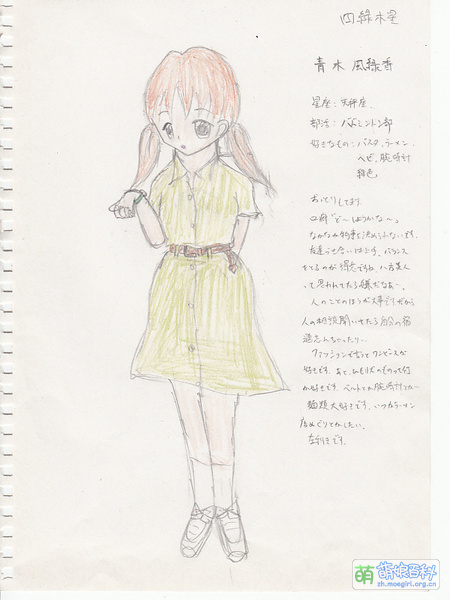 四緑木星
青木 風緑香
星座：天秤座
部活：バドミントン部
好きなもの：パスタ、ラーメン
ヘビ、腕時計
緑色
おっとりしてます。
口癖「ど〜しようかな〜」
なかなか物事を決められないです。
友達づき合いは上手、バランス
をとるのが得意ですね。八方美人
って思われてたら嫌だなぁ。
人のことのほうが大事ですから
人の相談聞いてたら自分の宿
題忘れちゃったり…
ファッションで言うとワンピースが
好きです。あと、ひも状のものって何
か好きです。ベルトとか腕時計とか…
麺類大好きです。いつかラーメン
店めぐりとかしたい。
左利きです。
萌娘百科
zh.moegirl.org.cn